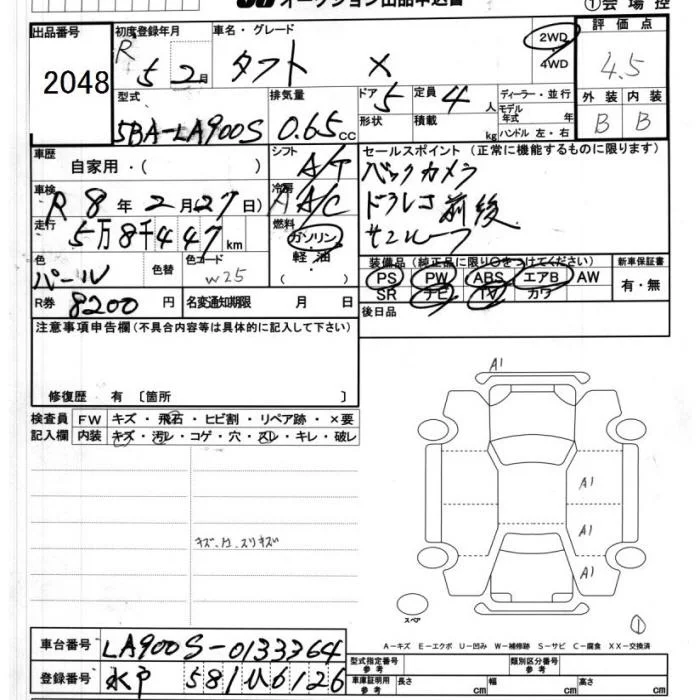 オークション出品申込書 ①会場控
出品番号 初度登録年月 車名・グレード 2WD 評価点
2048 R 5 2月 タフト X 4WD 4.5
型式 排気量 ドア 5 定員 4人 ディーラー・並行 外装 内装
5BA-LA900S 0.65cc 形状 積載 kg モデル年式 年 ハンドル 左・右 B B
車歴 自家用・( ) シフト A/T セールスポイント (正常に機能するものに限ります)
車検 R 8年 2月 27日) 冷房 A/C バックカメラ
走行 5万8千447km 燃料 ガソリン ドラレコ前後
色 パール 色替 色コード W25 軽・油 ( ) サンルーフ
装備品(純正品に限り○をつけてください) 新車保証書
PS PW ABS エアB AW 有・無
SR ナビ TV カワ
R券 8200円 名変通知期限 月 日 後日品
注意事項申告欄(不具合内容等は具体的に記入して下さい)
修復歴 有 〔箇所 〕
検査員 FW キズ・飛石・ヒビ割・リペア跡・×要
記入欄 内装 キズ・汚レ・コゲ・穴・スレ・キレ・破レ
A1
A1
A1
A1
スペア
①
A-キズ E-エクボ U-凹み W-補修跡 S-サビ C-腐食 XX-交換済
車台番号 LA900S-0133364
登録番号 水戸 581 6126
型式指定番号 参考 類別区分番号 参考
車庫証明用 参考 長さ cm 幅 cm 高さ cm